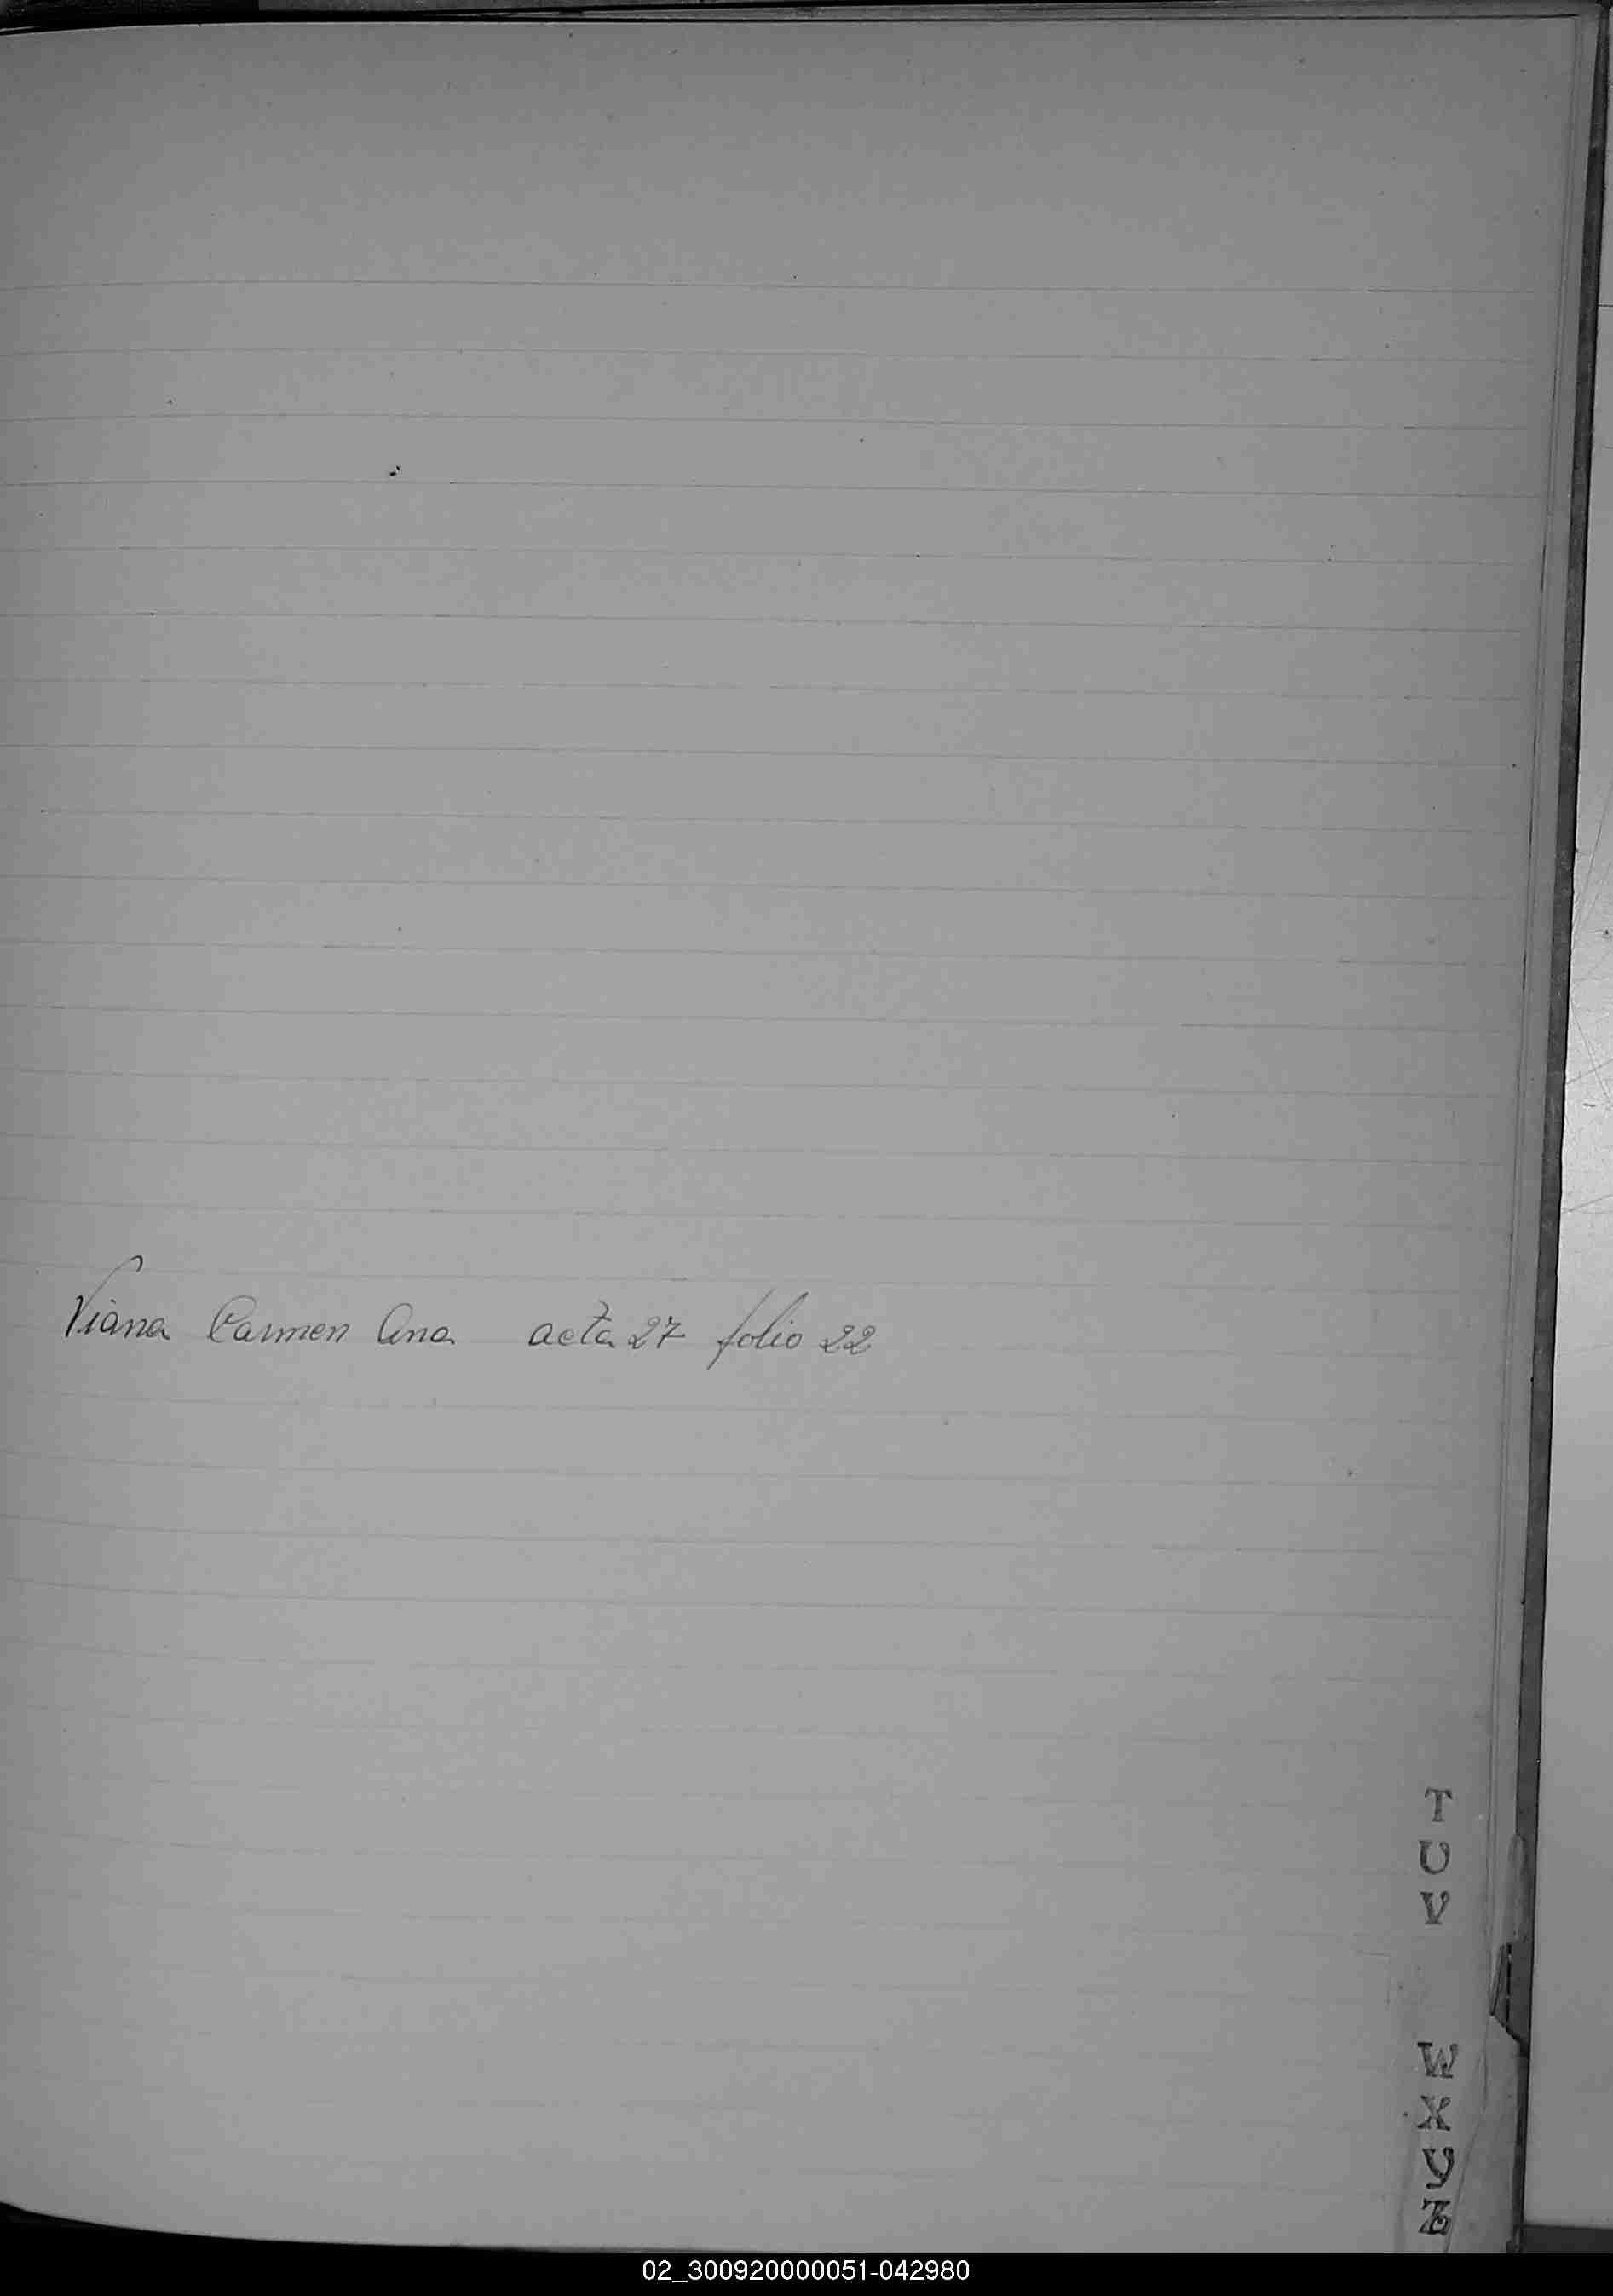 Viana Carmen Ana acta 27 folio 22
T
U
V
W
X
Y
Z
02_300920000051-042980